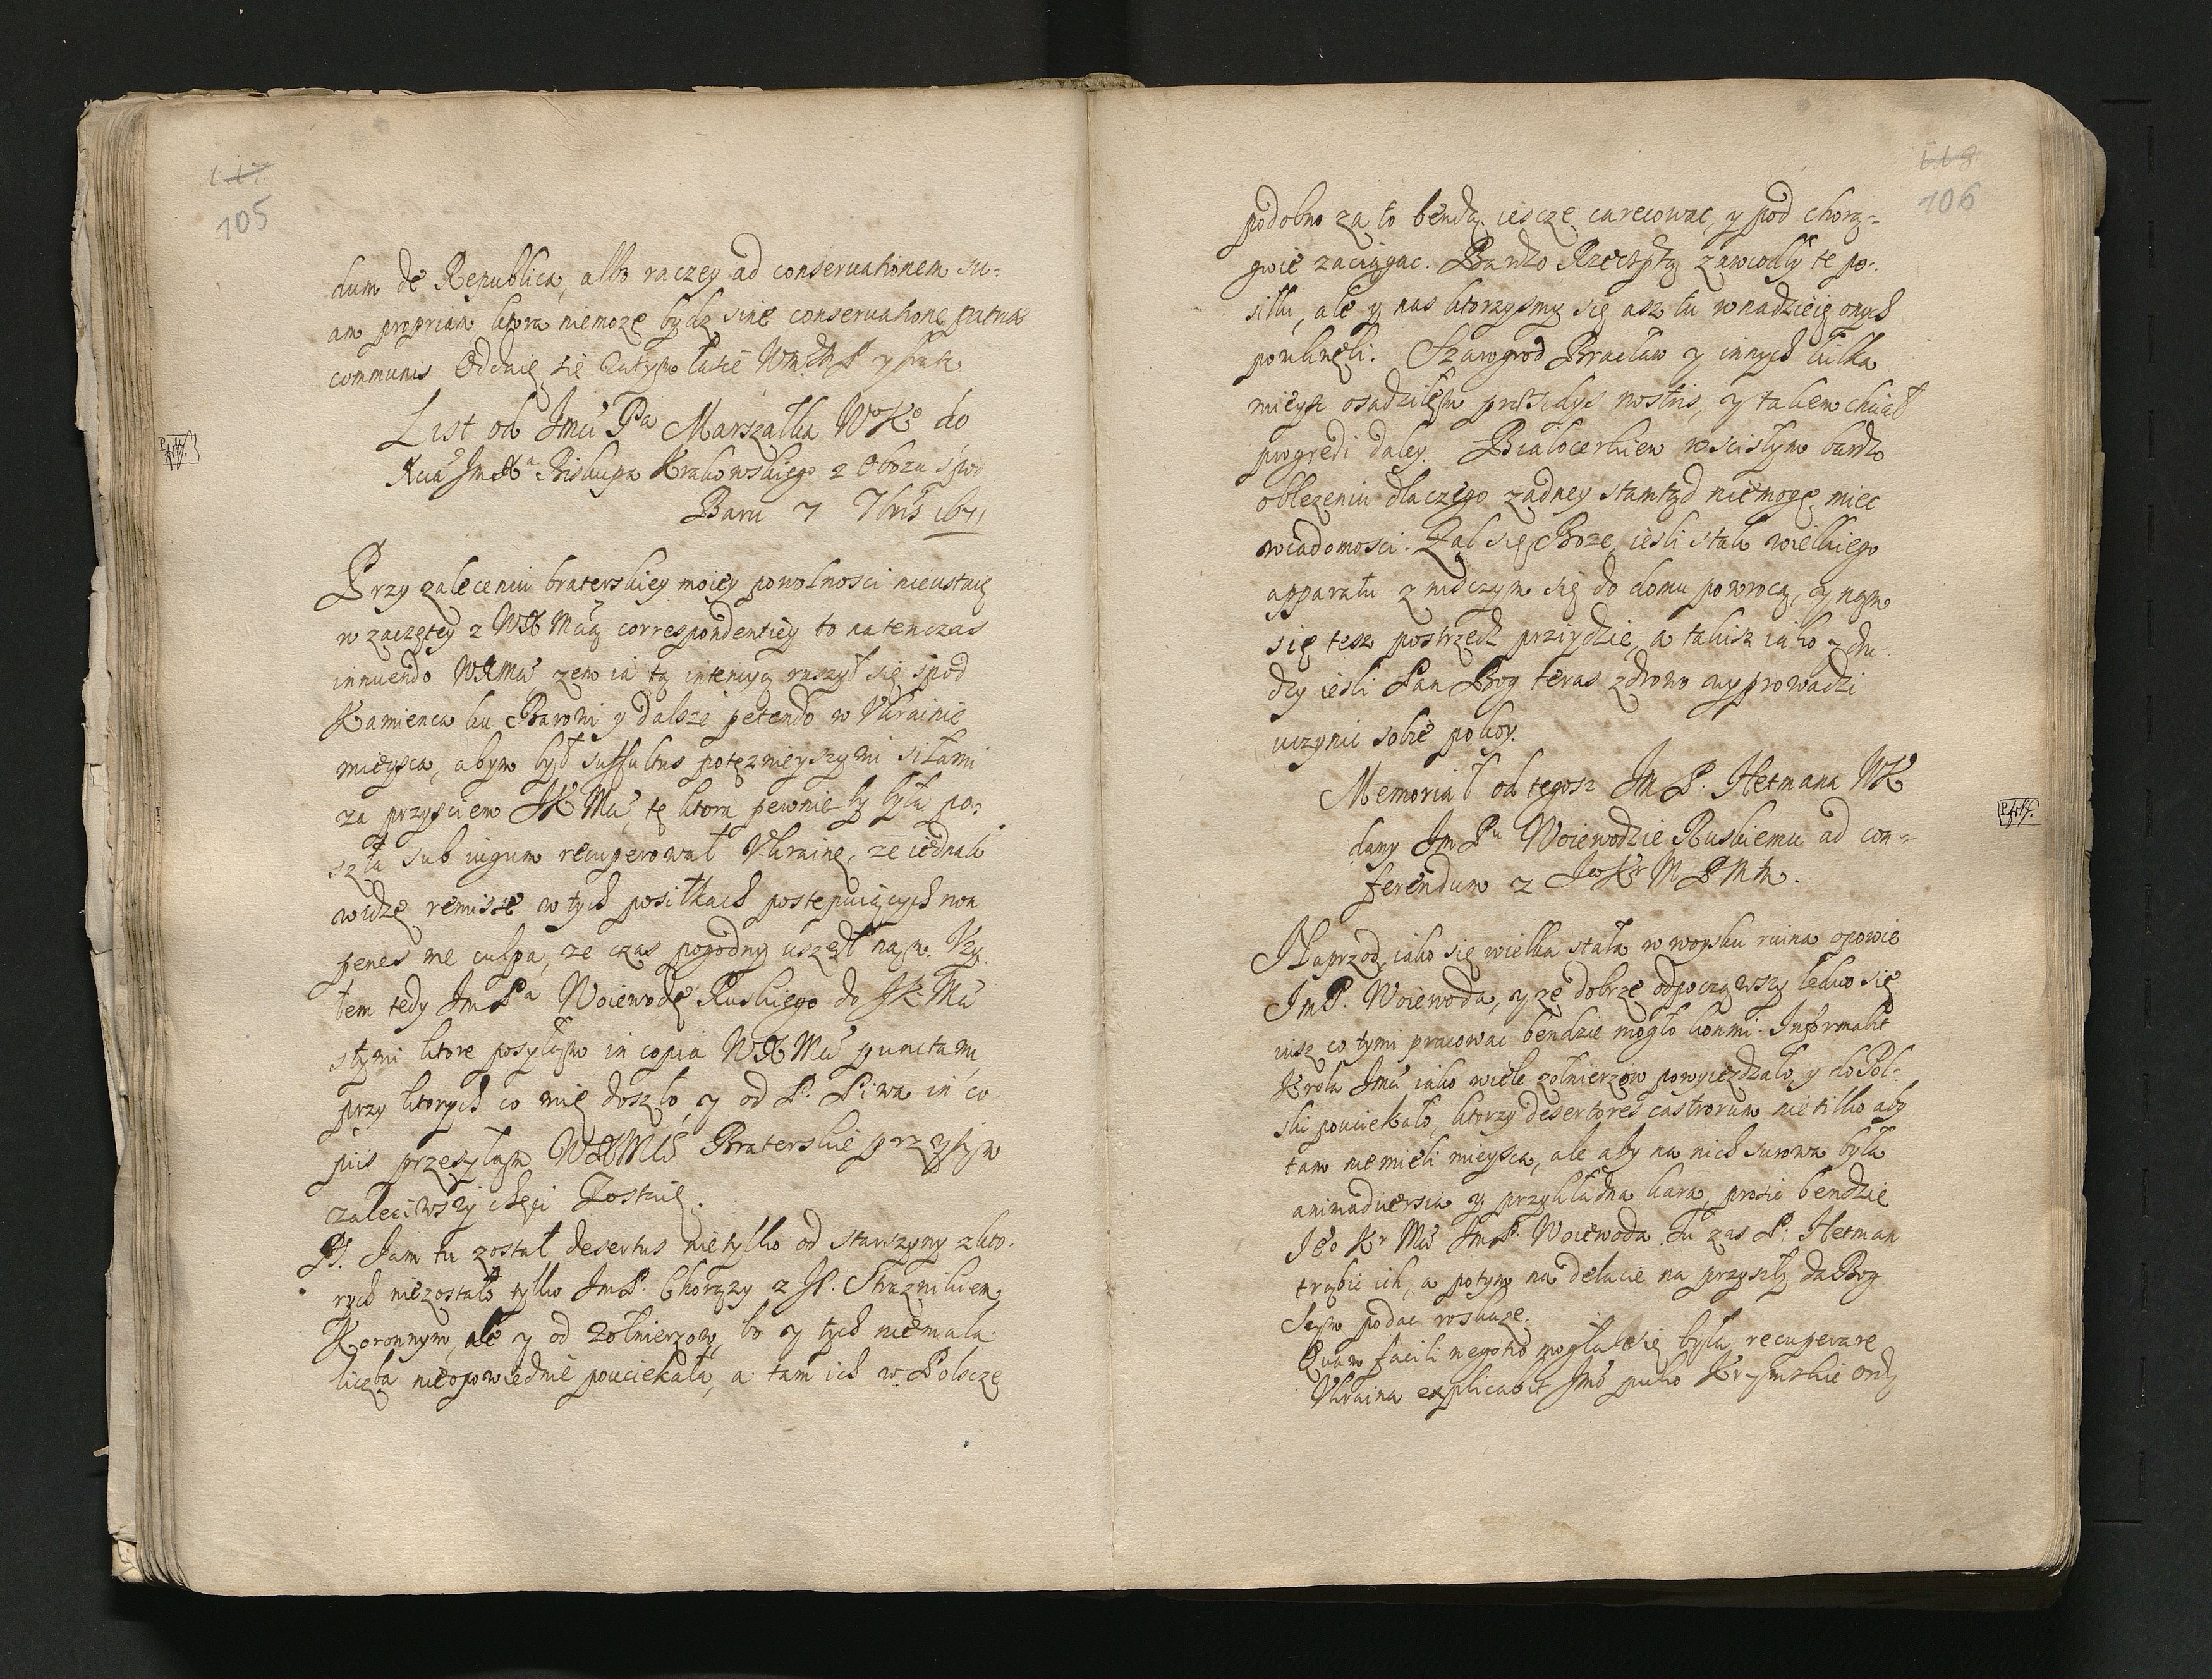 117
105
dum de Republica, albo raczey ad conseruationem su-
am propriam ktora niemoze bydz sine conseruatione patriae
communis Oddaię się zatym łasce
List od Jmci Pa Marszałka WKo do
Xcia Jm Xa Biskupa Krakowskiego z Obozu spod
Baru 7 7bris 1671
Przy zaleceniu braterskiey moiey powolnosci nieustaię
w zaczętey z WXMcią correspondentiey to natenczas
innuendo WXMci zem ia tą intencyą ruszył się spod
Kamienca ku Barowi y dalsze petendo w Vkrainie
mieysca, abym był suffultus potęznieyszymi siłami
za przysciem JKMci, te ktora pewnie by była po-
szła sub iugum recuperował Vkrainę, ze iednak
widzę remisse w tych posiłkach postępuiących non
penes me culpa, ze czas pogodny uszedł nam. Vzy-
łem tedy Jm Pa Woiewodę Ruskiego do JKMci
stymi ktore posyłam in copia WXMci punctami
przy ktorych co mię doszło, y od P. Piwa in co-
piis przesyłam WXMci Braterskie przytym
zaleciwszy chęci Zostaię.
PS. Jam tu został desertus nietylko od starszyny zkto-
rych niezostało tylko JmP. Chorązy z JP. Straznikiem
Koronnym, ale y od Zołnierzow, bo y tych niemała
liczba nieopowiednie pouciekała, a tam ich w Polscze
118
106
podobno za to bendą iescze carecowac, y pod chorą-
gwie zaciągac. Bardzo Rzecpltą zawiodły te po-
siłki, ale y nas ktorzysmy się asz tu w nadzieię onych
pomknęli. Szarogrod Bracław y innych kilka
mieysc osadziłem praesidys nostris, y takiem chciał
progredi daley. Białocerkiew w scisłym bardzo
oblęzeniu dlaczego zadney stamtąd niemogę miec
wiadomosci. Zal się Boze, iesli stak wielkiego
apparatu z niczym się do domu powrocą, y nam
się tesz postrzedz przyydzie, a takisz iako y dru-
dzy iesli Pan Bog teras zdrowo wyprowadzi
uczynic sobie pokoy.
Memoriał od tegosz Jm P. Hetmana WK
dany Jm Pu Woiewodzie Ruskiemu ad con-
ferendum z JoKr M P M m.
Naprzod, iako się wielka stała w woysku ruina opowie
JmP. Woiewoda, y ze dobrze odpocząwszy ledwo się
iusz co tymi pracowac bendzie mogło konmi. Informabit
Krola Jmci iako wiele zołnierzow powyiezdzało y do Pol-
ski pouciekało, ktorzy desertores castrorum nietilko aby
tam niemieli mieysca, ale aby na nich surowa była
animaduersia y przykładna kara, prosic bendzie
Jeo Kr Mci JmP. Woiewoda. Tu zas P. Hetman
trąbic ich, a potym na delacie na przyszły da Bog
Seym podac roskaze.
Quam facili negotio mogłabysię była recuperare
Vkraina explicabit Jmc puko Krymskie ordy